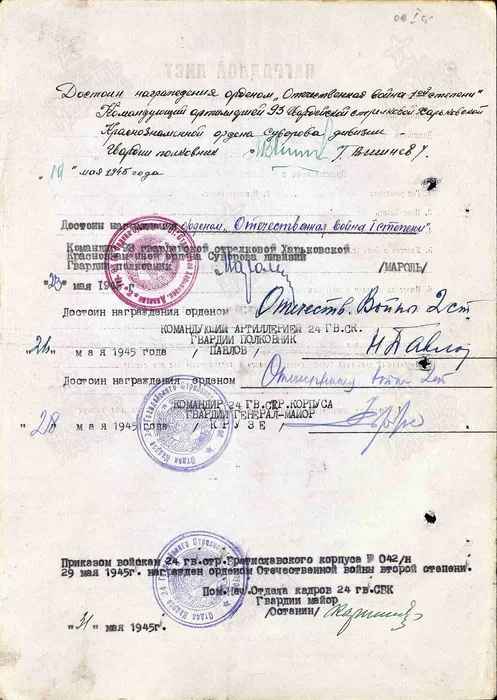 Достоин награждения орденом „Отечественная война 1ой степени"
Командующий артиллерией 93 Гвардейской стрелковой Харьковской
Краснознаменной ордена Суворова дивизии
Гвардии полковник /Вишнев/.
"19" мая 1945 года
Достоин награждения орденом, Отечественная война I степени".
Командир 93 гвардейской стрелковой Харьковской
Краснознаменной ордена Суворова дивизии
Гвардии полковник /МАРОЛЬ/
"23" мая 1945г.
Достоин награждения орденом Отечеств. Войны 2 ст
КОМАНДУЮЩИЙ АРТИЛЛЕРИЕЙ 24 ГВ.СК.
ГВАРДИИ ПОЛКОВНИК
"26" мая 1945 года / ПАВЛОВ /
Достоин награждения орденом Отечественная война 2 ст
КОМАНДИР 24 ГВ.СТР.КОРПУСА
ГВАРДИИ ГЕНЕРАЛ-МАЙОР
"28" мая 1945 года / КРУЗЕ /
Приказом войскам 24 гв.стр.Братиславского корпуса № 042/н
29 мая 1945г. награжден орденом Отечественной войны второй степени.
Пом.Нач.Отдела кадров 24 гв.СБК
Гвардии майор
/Останин/
"31" мая 1945г.